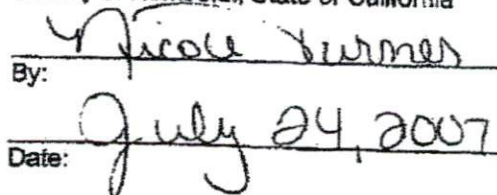 State of California
Nicole Turner
By:
July 24, 2007
Date: